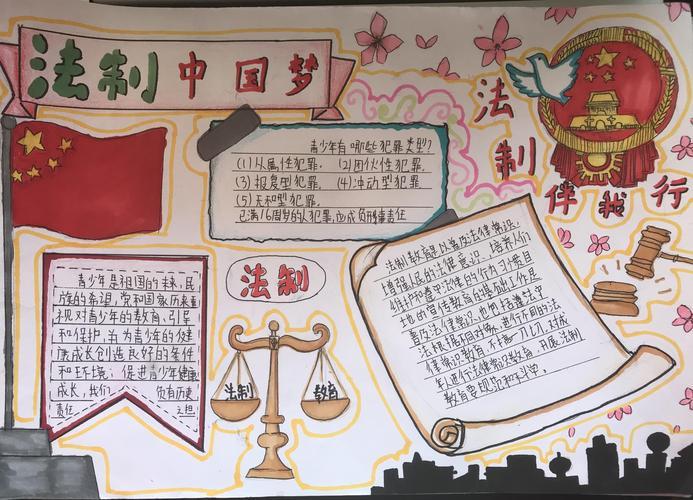 法制中国梦
法制
伴我行
青少年有哪些犯罪类型?
(1)从属性犯罪. (2)团伙性犯罪.
(3)报复型犯罪. (4)冲动型犯罪
(5)无知型犯罪.
已满16周岁的人犯罪,应成负刑事责任
青少年是祖国的未来,民
族的希望,党和国家历来重
视对青少年的教育、引导
和保护,并为青少年的健
康成长创造良好的条件
和环境;促进青少年健康
成长,我们 负有历史
责任
法制
法制
教育
法制教育是以普及法律常识,
增强人民的法律意识、培养人们
维护和遵守法律的行为习惯目
地的宣传教育的基础工作是
普及法律常识,也把话遵法守
法根据不同对象,进行不同的法
律常识教育,
年)进行法律常识教育,开展法制
教育要规范和科学。